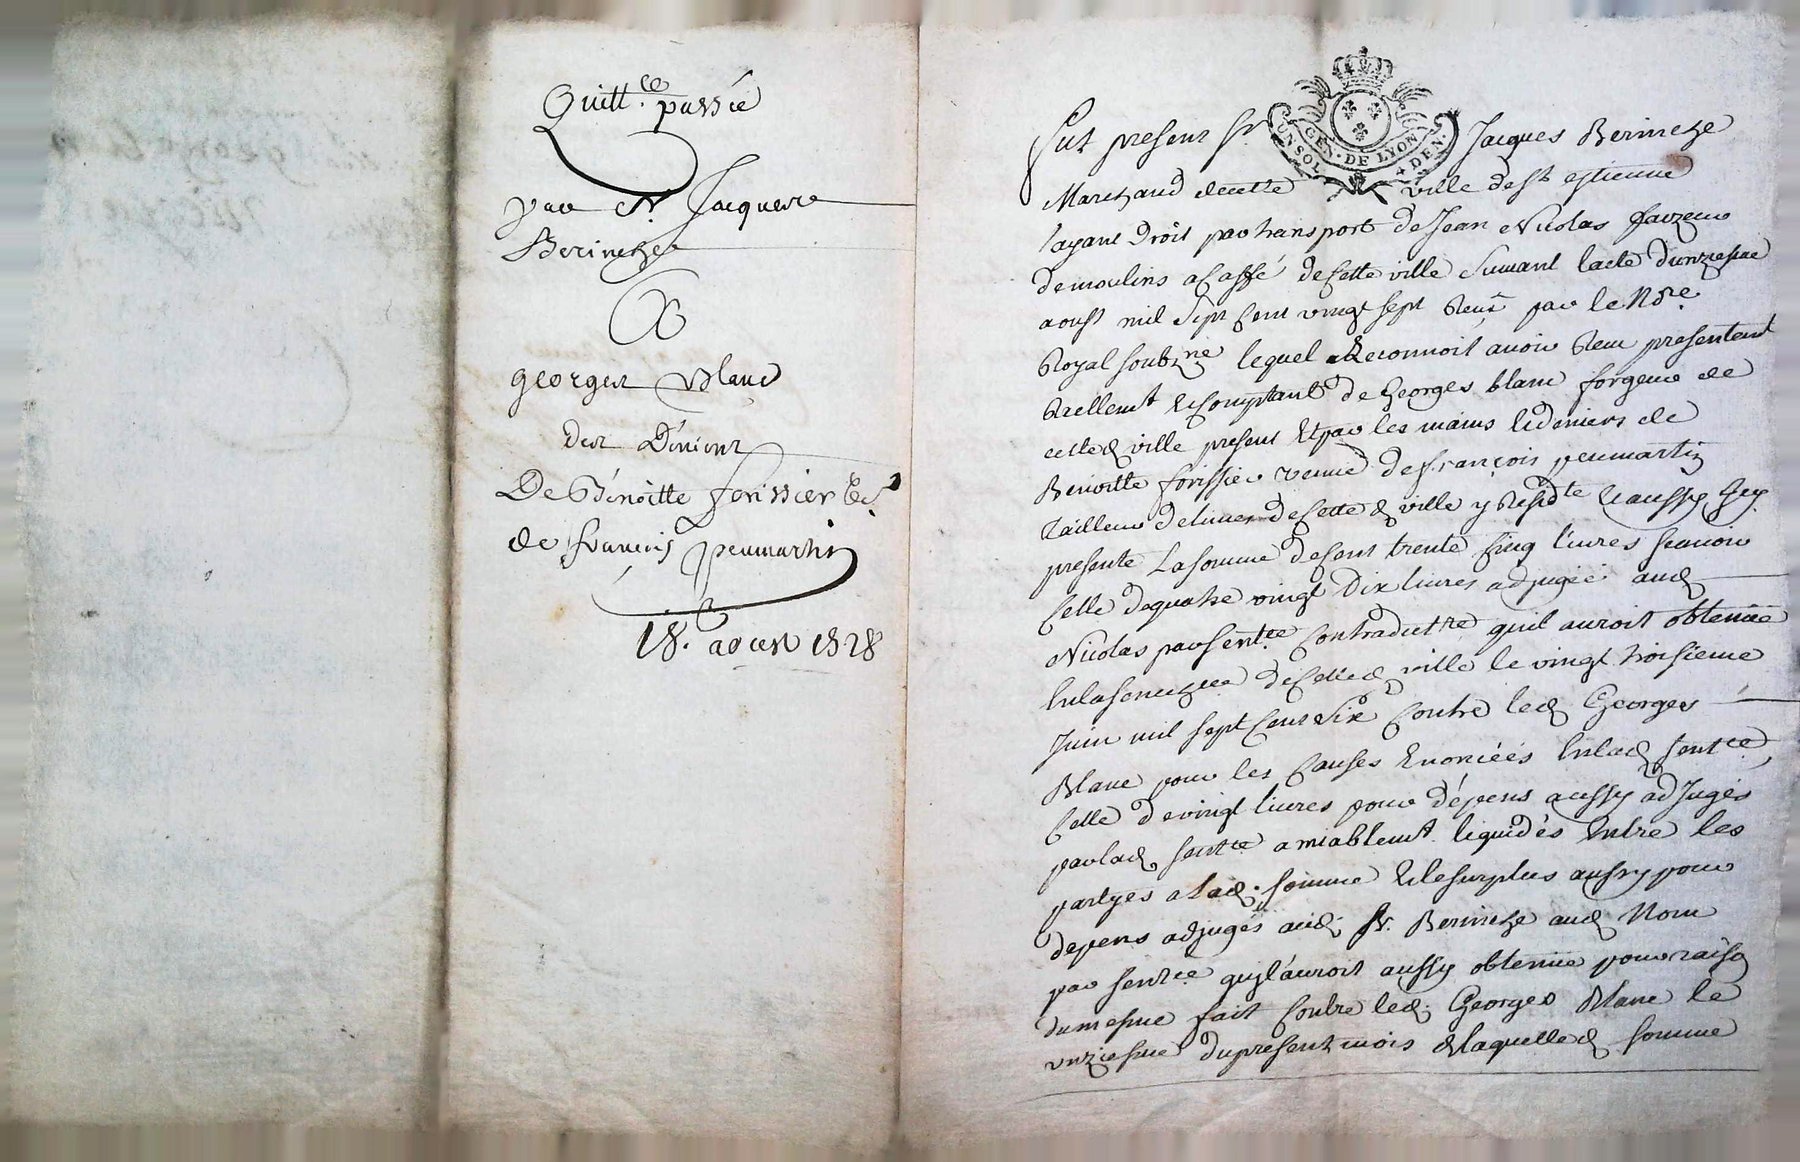 Quitt.ce passée
par Sr. Jacques
Berinche
A
georges Blanc
des Déniers
De Bénoitte forissier ve
de francois peumartin
18. aoust 1728
GEN. DE LYON
UN SOL DEN.
Fut present Sr. Jacques Berinche
Marchand decette ville de St estienne
layant Droit par transport de Jean Nicolas faizeur
demoulins a Caffé de Cette ville Suivant lacte dunziesme
aoust mil Sept Cent vingt sept Receu par le No.re
Royal soubz.né lequel a Reconnoit avoir Receu presentemt
Reellemt & Comptant de Georges blanc forgeur de
cetted. ville present Et par les mains & deniers de
Benoitte forissier veuve de francois peumartin
Tailleur de limes de Cetted. ville y Resid.te & aussy Icy
presente La somme de Cent trente Cinq livres scavoir
Celle de quatre vingt Dix livres adjugée aud.
Nicolas par Sent.ce Contradict.re quil auroit obtenüe
En la Senech.ée de Cetted. ville le vingt troisieme
Juin mil sept Cent Six Contre led. Georges
Blanc pour les Causes Enoncées En lad. Sent.ce,
Celle de vingt livres pour dépens aussy adJugés
par lad. sent.ce amiablemt liquidés Entre les
partyes a Lad. somme & le surplus aussy pour
depens adjugés aud. Sr. Berinche aud. Nom
par sent.ce quil auroit aussy obtenüe pour raison
du mesme fait Contre led. Georges Blanc le
unziesme du present mois & laquelled. somme